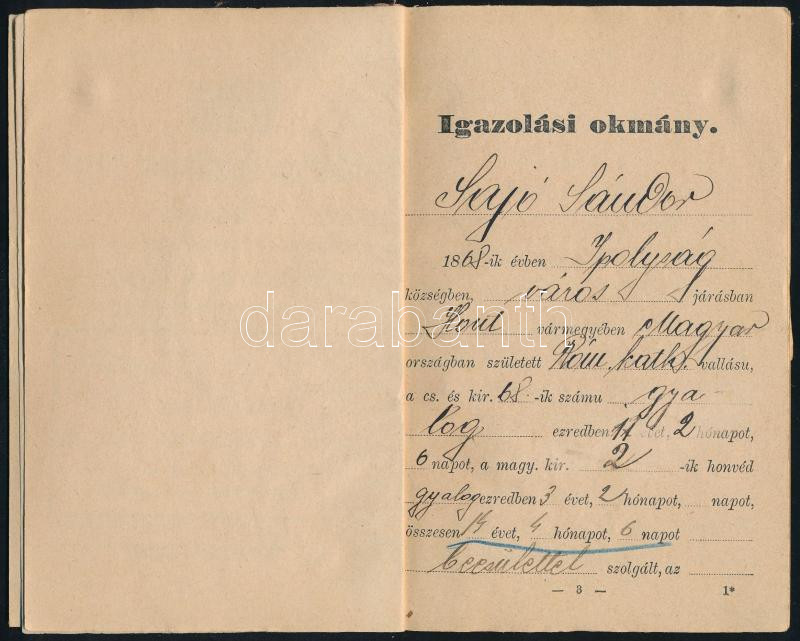 Igazolási okmány.
Sajó Sándor
1868-ik évben Ipolyság
községben, város járásban
Hont vármegyében Magyar
országban született Róm. kath. vallásu,
a cs. és kir. 68.-ik számu gya-
log ezredben 11 évet, 2 hónapot,
6 napot, a magy. kir. 2 -ik honvéd
gyalog ezredben 3 évet, 2 hónapot, napot,
összesen 14 évet, 4 hónapot, 6 napot
becsülettel szolgált, az
— 3 — 1*
darabanth